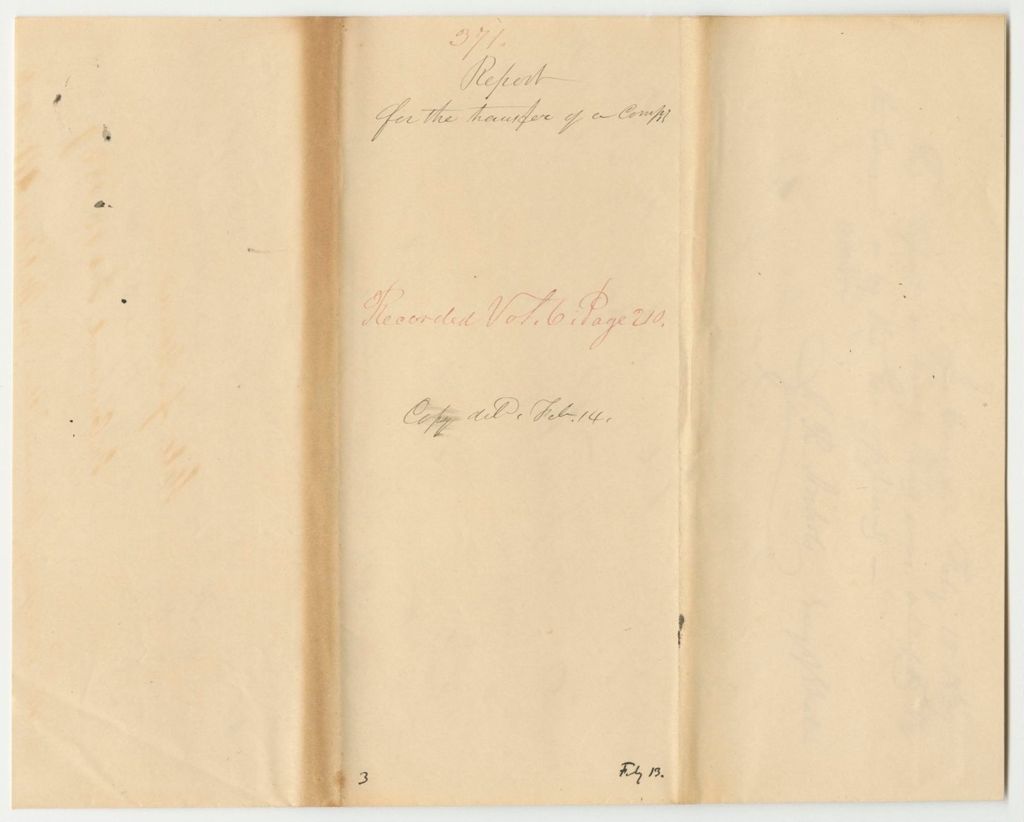 371.
Report
for the transfer of a Comp.
Recorded Vol. 6. Page 210.
Copy deld. Feb. 14.
3
Feby 13.